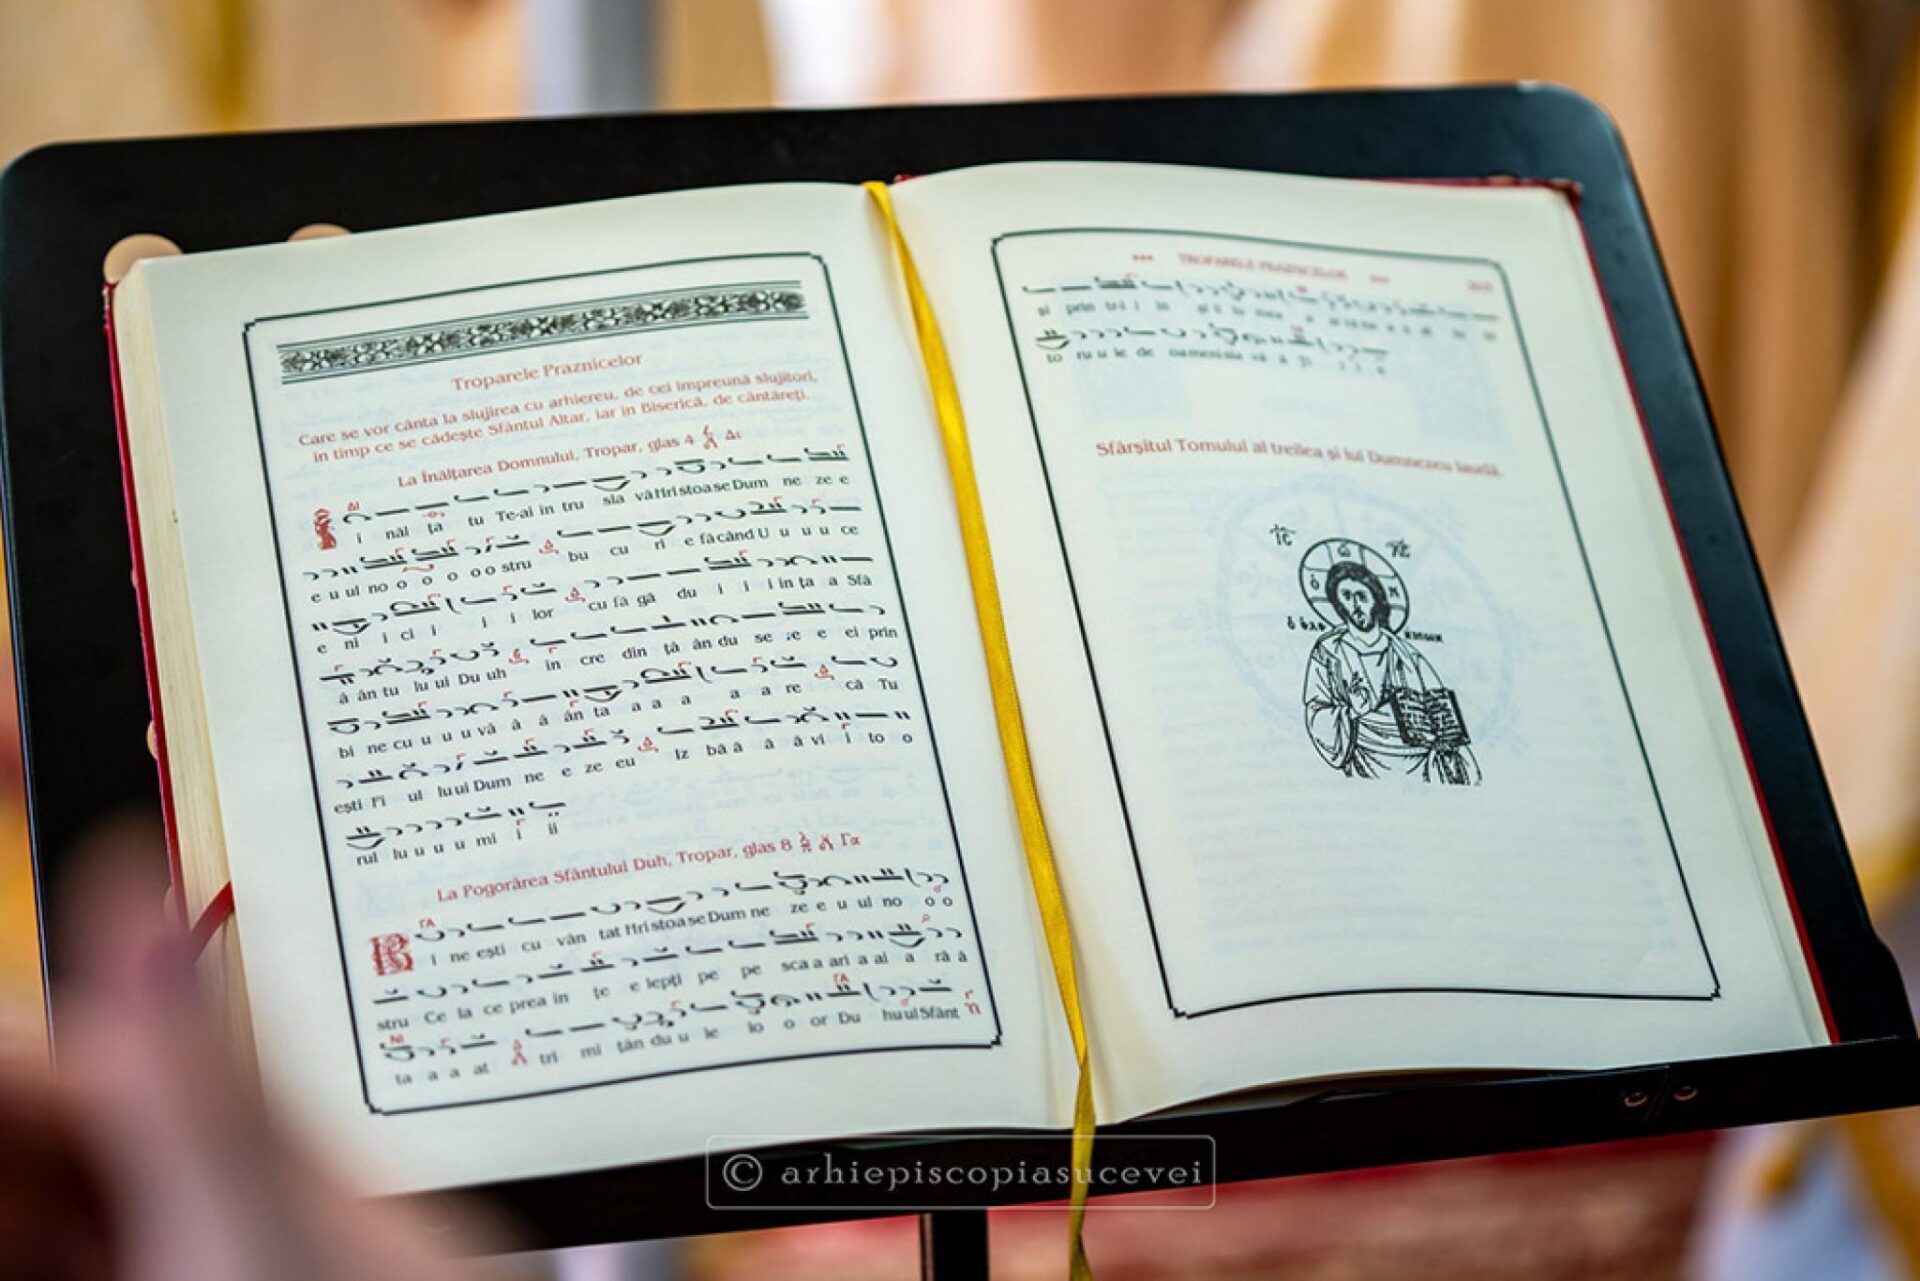 Troparele Praznicelor
Care se vor cânta la slujirea cu arhiereu, de cei împreună slujitori,
în timp ce se cădește Sfântul Altar, iar în Biserică, de cântăreți.
La Înălțarea Domnului, Tropar, glas 4
Î năl ța tu Te-ai în tru sla vă Hristoase Dum ne ze e
e u ul no o o o o o stru bu cu ri e făcând U u u u ce
e ni i ci i i i lor cu fă gă du i i i in ța a Sfâ
â ân tu lu ui Du uh în cre din țâ ân du se e e e ei prin
bi ne cu u u u vâ â â ân ta a a a a a re că Tu
ești Fi ul lu ui Dum ne e ze eu Iz bă ă ă ă vi i to o
rul lu u u u mi i ii
La Pogorârea Sfântului Duh, Tropar, glas 8 Γα
B i ne ești cu vân tat Hristoase Dum ne ze e u ul no o o
stru Ce la ce prea în țe e lepți pe pe sca a ari a al a ră ă
ta a a at tri mi țân du u le lo o or Du hu ul Sfânt
*** TROPARELE PRAZNICELOR ***
și prin tr i i in
to ru u le de oameni sla vă a Ți i i e
Sfârșitul Tomului al treilea și lui Dumnezeu laudă.
IC XC
ὁ ὤ Ν
© arhiepiscopiasucevei